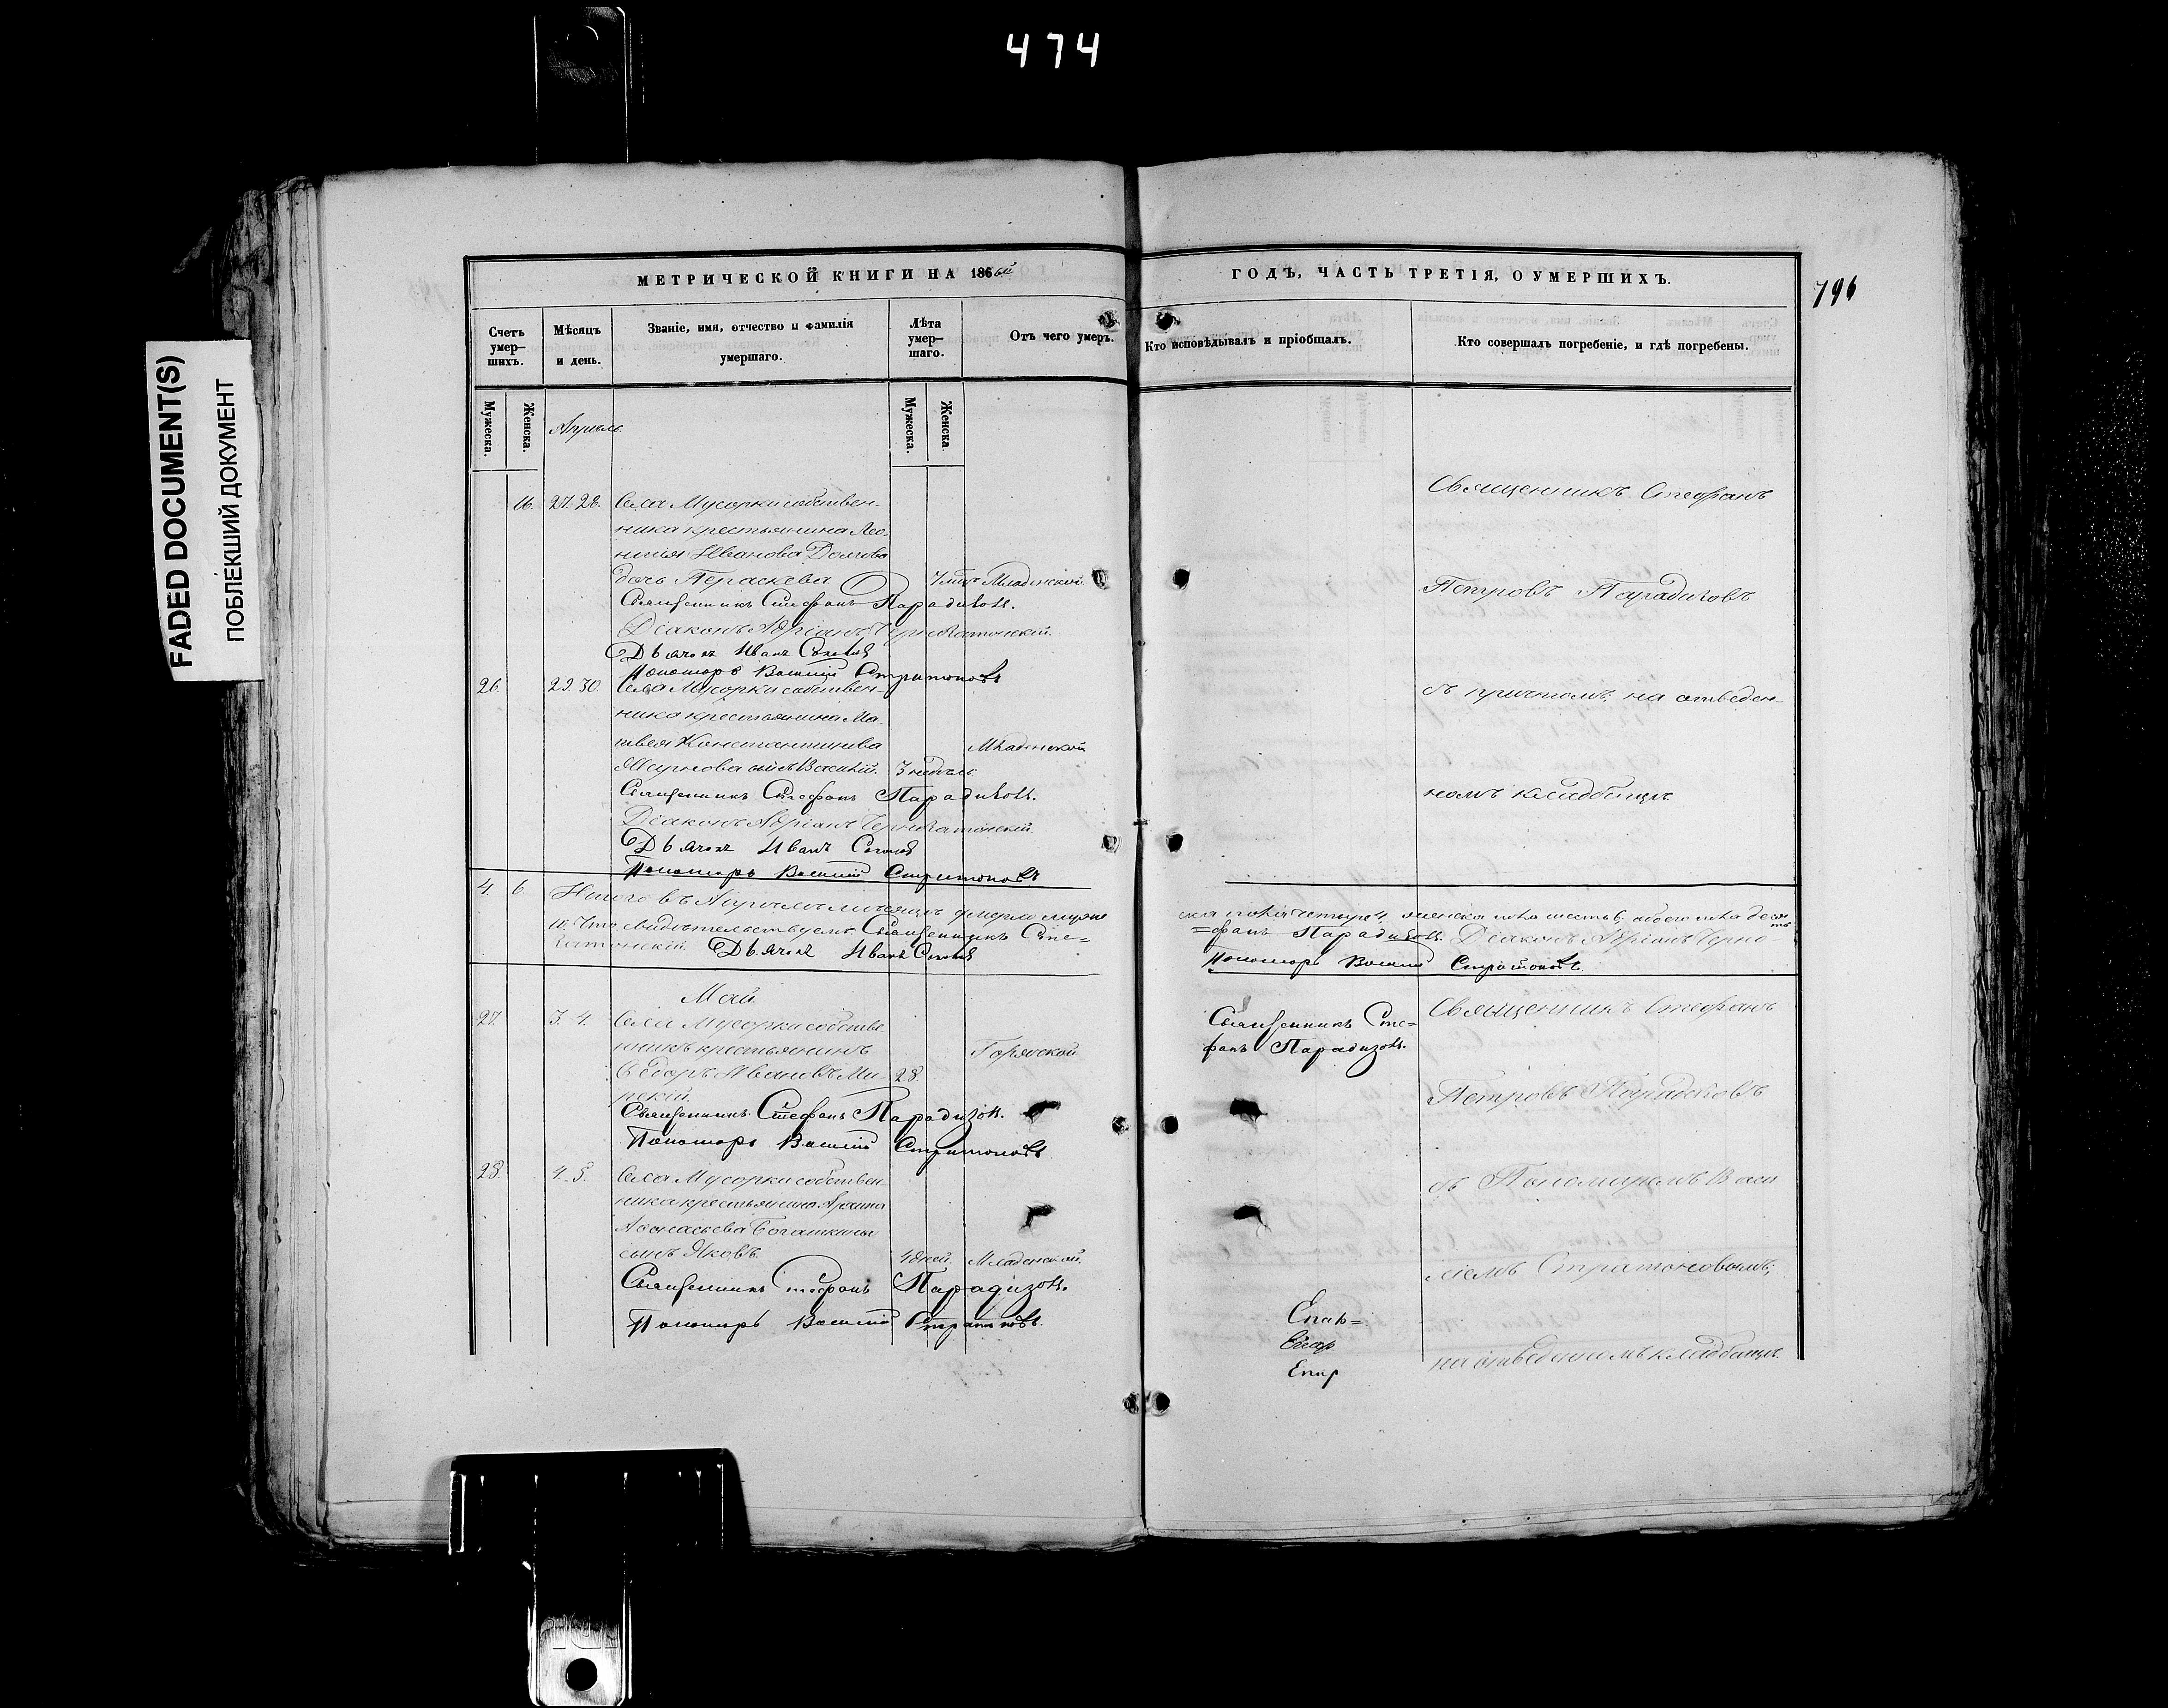 474
FADED DOCUMENT(S)
ПОБЛЕКШИЙ ДОКУМЕНТ
796
МЕТРИЧЕСКОЙ КНИГИ НА 1866ый
ГОДЪ, ЧАСТЬ ТРЕТІЯ, О УМЕРШИХЪ.
Счетъ умер—шихъ.
Мѣсяцъ и день.
Званіе, имя, отчество и фамилія умершаго.
Лѣта умер—шаго.
Отъ чего умеръ.
Кто исповѣдывалъ и пріобщалъ.
Кто совершалъ погребеніе, и гдѣ погребены.
Мужеска.
Женска.
Мужеска.
Женска
Апрѣль
16. 27. 28. Села Мусорки собствен-
ника крестьянина
Иванова
дочь Параскева Младенской
Священникъ Стефанъ Парадизовъ.
Діаконъ Адріанъ
Дьячокъ Иванъ
Пономарь Василій Стратоновъ
Священникъ Стефанъ
Петровъ Парадизовъ
съ причтомъ, на отведен-
номъ кладбищѣ.
26. 29. 30. Села Мусорки собствен-
ника крестьянина Ма-
твея Константинова
сынъ 3 недѣль Младенской
Священникъ Стефанъ Парадизовъ.
Діаконъ Адріанъ
Дьячокъ Иванъ
Пономарь Василій Стратоновъ
4. 6. Итого въ Апрѣлѣ мѣсяцѣ умерло муже
ска пола четыре 4, женска пола шесть 6, обоего пола десять
10. Что свидѣтельствуемъ: Священникъ Сте=
=фанъ Парадизовъ. Діаконъ Адріанъ
Дьячокъ Иванъ
Пономарь Василій Стратоновъ.
Май
27. 3. 4. Села Мусорки собстве
нникъ крестьянинъ
Ивановъ 28. Горячкой
Священникъ Стефанъ Парадизовъ.
Пономарь Василій Стратоновъ
Священникъ Сте=
фанъ Парадизовъ.
Священникъ Стефанъ
Петровъ Парадизовъ
съ Пономаремъ Васи
ліемъ Стратоновымъ,
на отведенномъ кладбищѣ.
28. 4. 5. Села Мусорки собствен
ника крестьянина
Афанасьева
сынъ Яковъ 4 дней. Младенской.
Священникъ Стефанъ Парадизовъ.
Пономарь Василій Стратоновъ.
Епар=
Епар
Епар